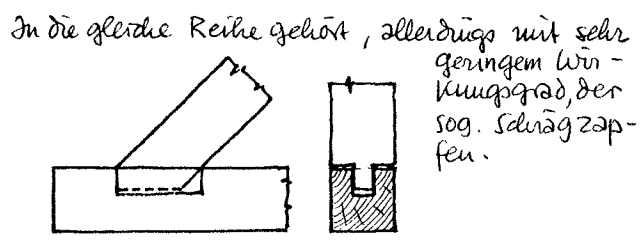 In die gleiche Reihe gehört, allerdings mit sehr
geringem Wir-
kungsgrad, der
sog. Schrägzap-
fen.